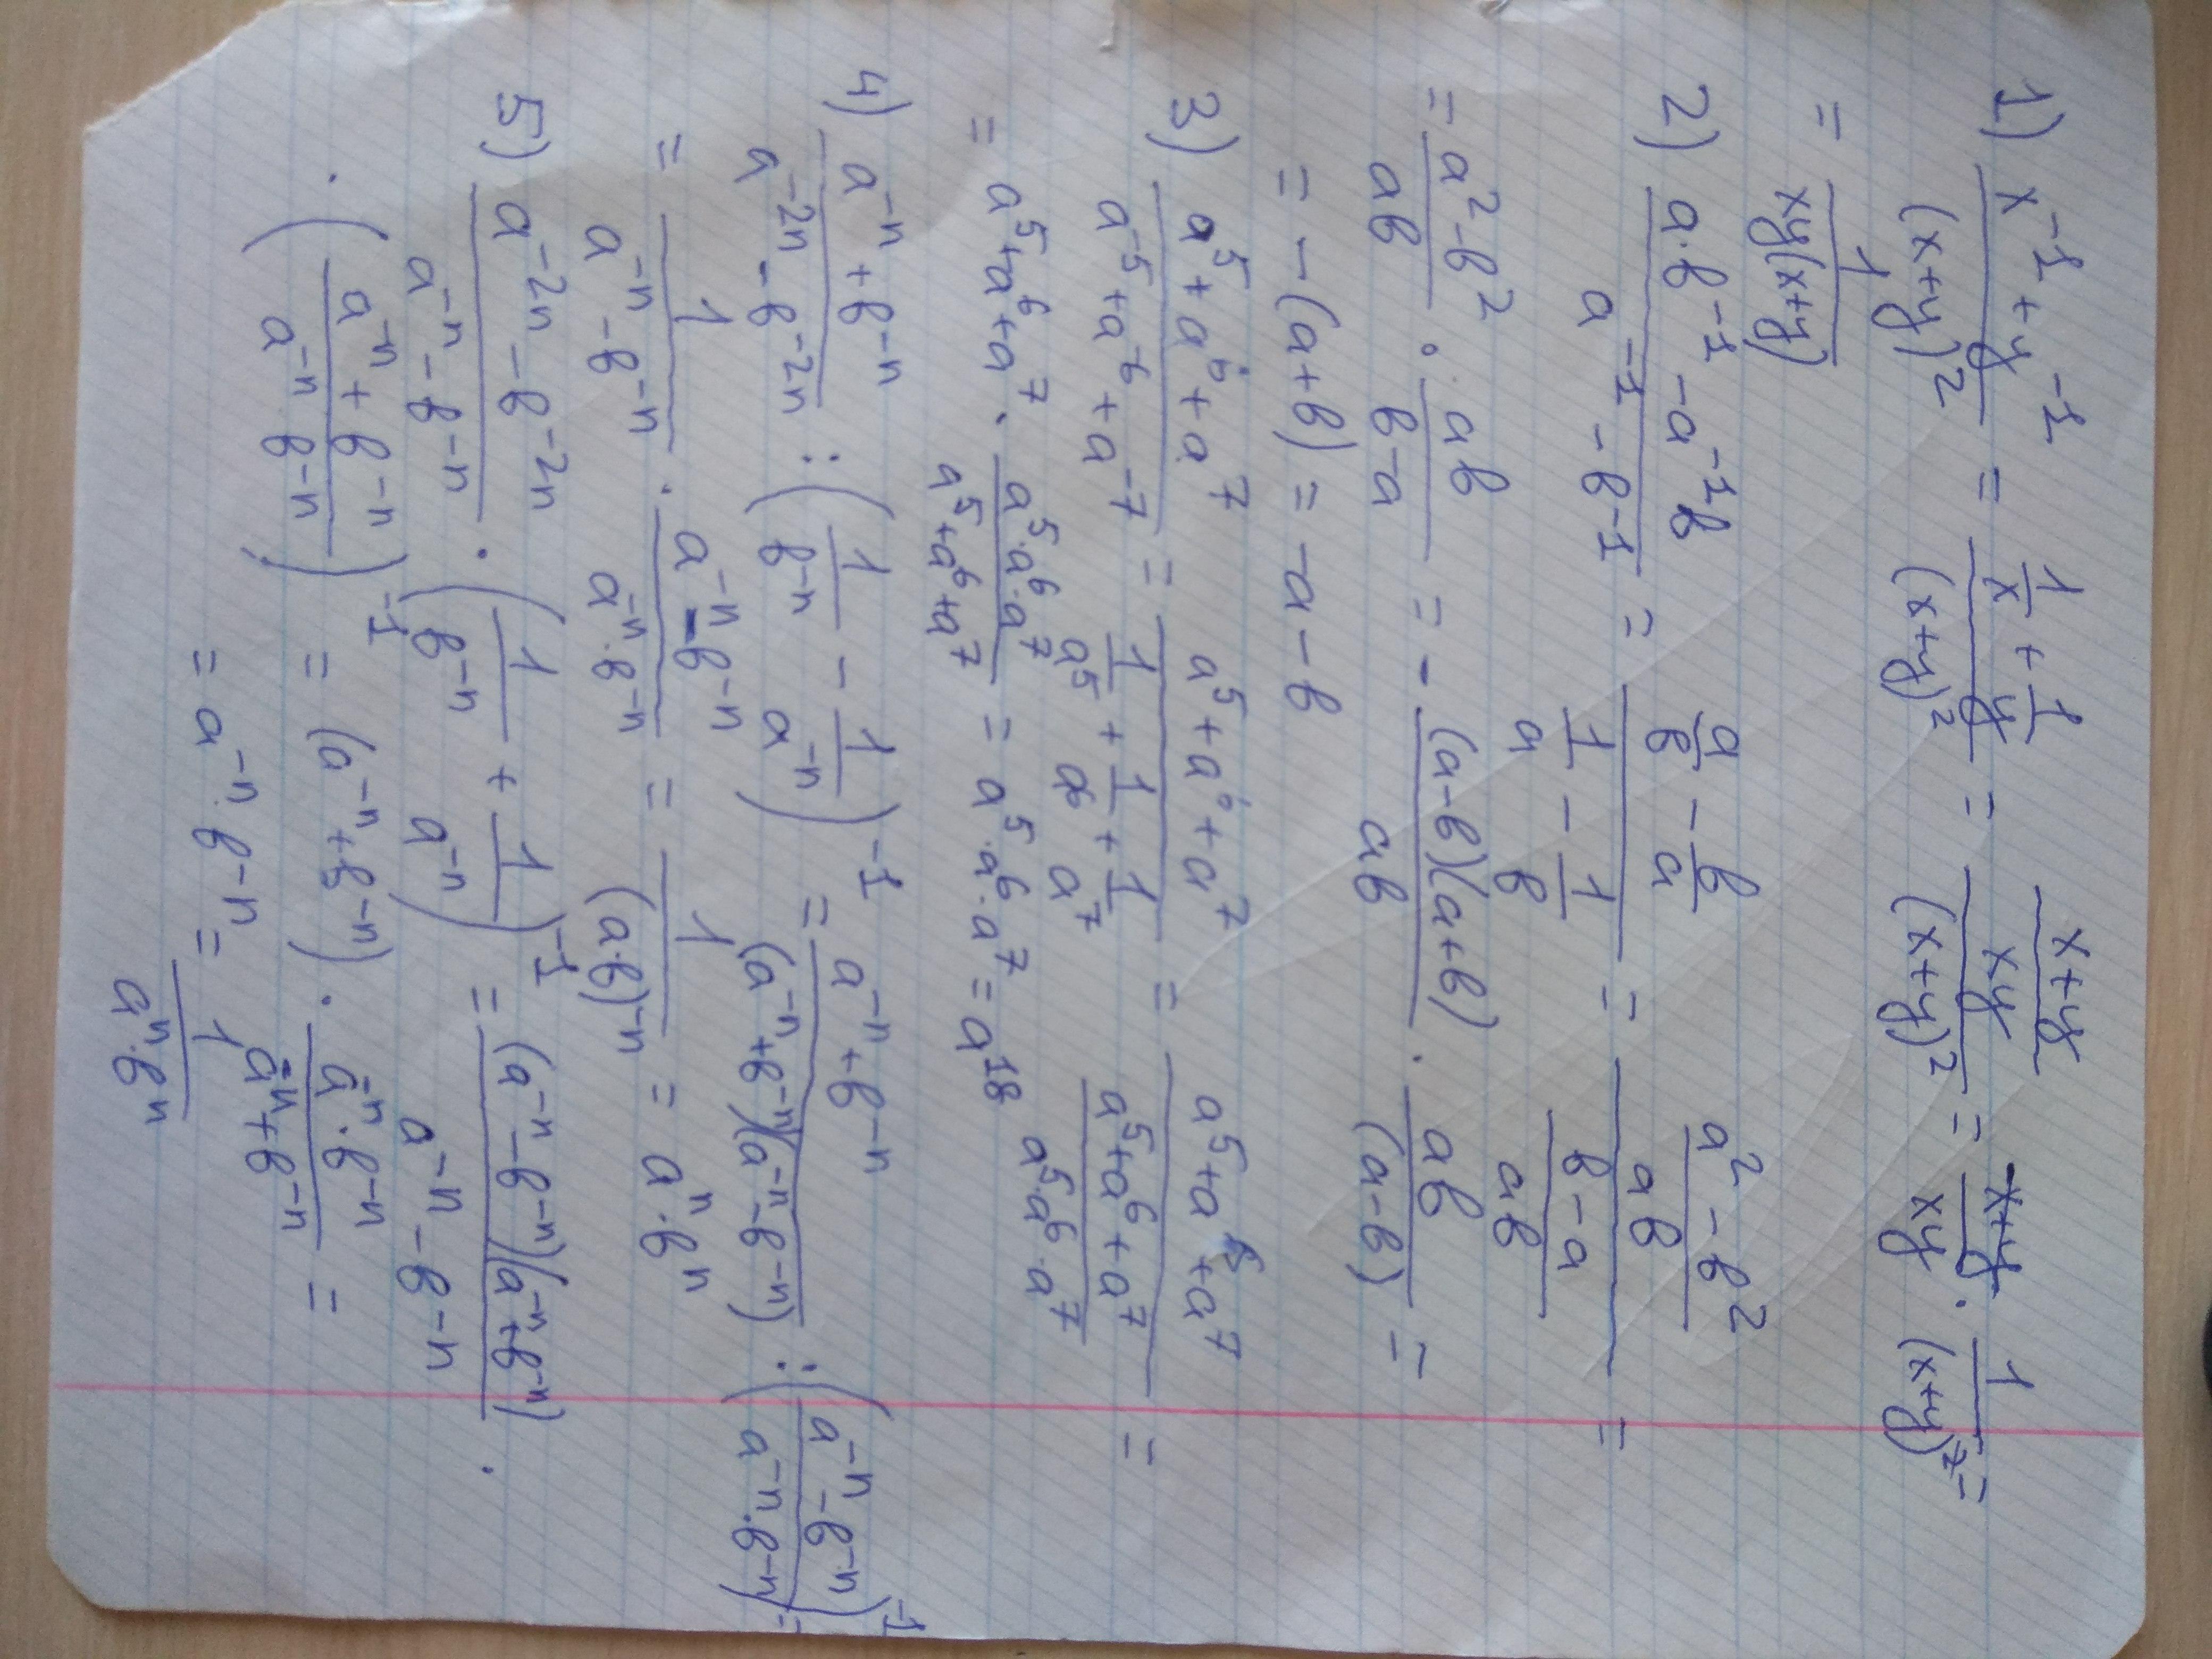 1) \frac{x^{-1}+y^{-1}}{(x+y)^2} = \frac{\frac{1}{x}+\frac{1}{y}}{(x+y)^2} = \frac{\frac{x+y}{xy}}{(x+y)^2} = \frac{x+y}{xy} \cdot \frac{1}{(x+y)^2} =
= \frac{1}{xy(x+y)}
2) \frac{a \cdot b^{-1} - a^{-1}b}{a^{-1} - b^{-1}} = \frac{\frac{a}{b} - \frac{b}{a}}{\frac{1}{a} - \frac{1}{b}} = \frac{\frac{a^2-b^2}{ab}}{\frac{b-a}{ab}} =
= \frac{a^2-b^2}{ab} \cdot \frac{ab}{b-a} = - \frac{(a-b)(a+b)}{ab} \cdot \frac{ab}{(a-b)} =
= -(a+b) = -a-b
3) \frac{a^5+a^6+a^7}{a^{-5}+a^{-6}+a^{-7}} = \frac{a^5+a^6+a^7}{\frac{1}{a^5}+\frac{1}{a^6}+\frac{1}{a^7}} = \frac{a^5+a^6+a^7}{\frac{a^5+a^6+a^7}{a^5 \cdot a^6 \cdot a^7}} =
= a^5+a^6+a^7 \cdot \frac{a^5 \cdot a^6 \cdot a^7}{a^5+a^6+a^7} = a^5 \cdot a^6 \cdot a^7 = a^{18}
4) \frac{a^{-n}+b^{-n}}{a^{-2n}-b^{-2n}} : \left(\frac{1}{b^{-n}} - \frac{1}{a^{-n}}\right)^{-1} = \frac{a^{-n}+b^{-n}}{(a^{-n}+b^{-n})(a^{-n}-b^{-n})} : \left(\frac{a^{-n}-b^{-n}}{a^{-n} \cdot b^{-n}}\right)^{-1} =
= \frac{1}{a^{-n}-b^{-n}} \cdot \frac{a^{-n}-b^{-n}}{a^{-n} \cdot b^{-n}} = \frac{1}{(a \cdot b)^{-n}} = a^n \cdot b^n
5) \frac{a^{-2n}-b^{-2n}}{a^{-n}-b^{-n}} \cdot \left(\frac{1}{b^{-n}} + \frac{1}{a^{-n}}\right)^{-1} = \frac{(a^{-n}-b^{-n})(a^{-n}+b^{-n})}{a^{-n}-b^{-n}} \cdot
\cdot \left(\frac{a^{-n}+b^{-n}}{a^{-n} b^{-n}}\right)^{-1} = (a^{-n}+b^{-n}) \cdot \frac{a^{-n} \cdot b^{-n}}{a^{-n}+b^{-n}} =
= a^{-n} \cdot b^{-n} = \frac{1}{a^n \cdot b^n}